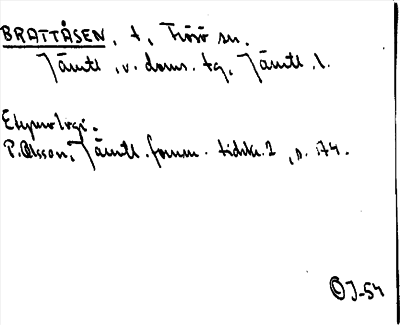 BRATTÅSEN, t, Frösö sn.
Jämtl, v. doms. tg, Jämtl. l.
Etymologi.
P. Olsson, Jämtl. fornm. tidskr. 2, s. 174.
ⒸJ-54